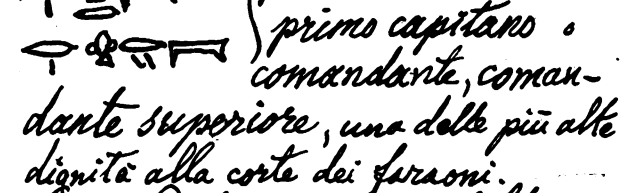 primo capitano o
comandante, coman-
dante superiore, una delle più alte
dignità alla corte dei faraoni.